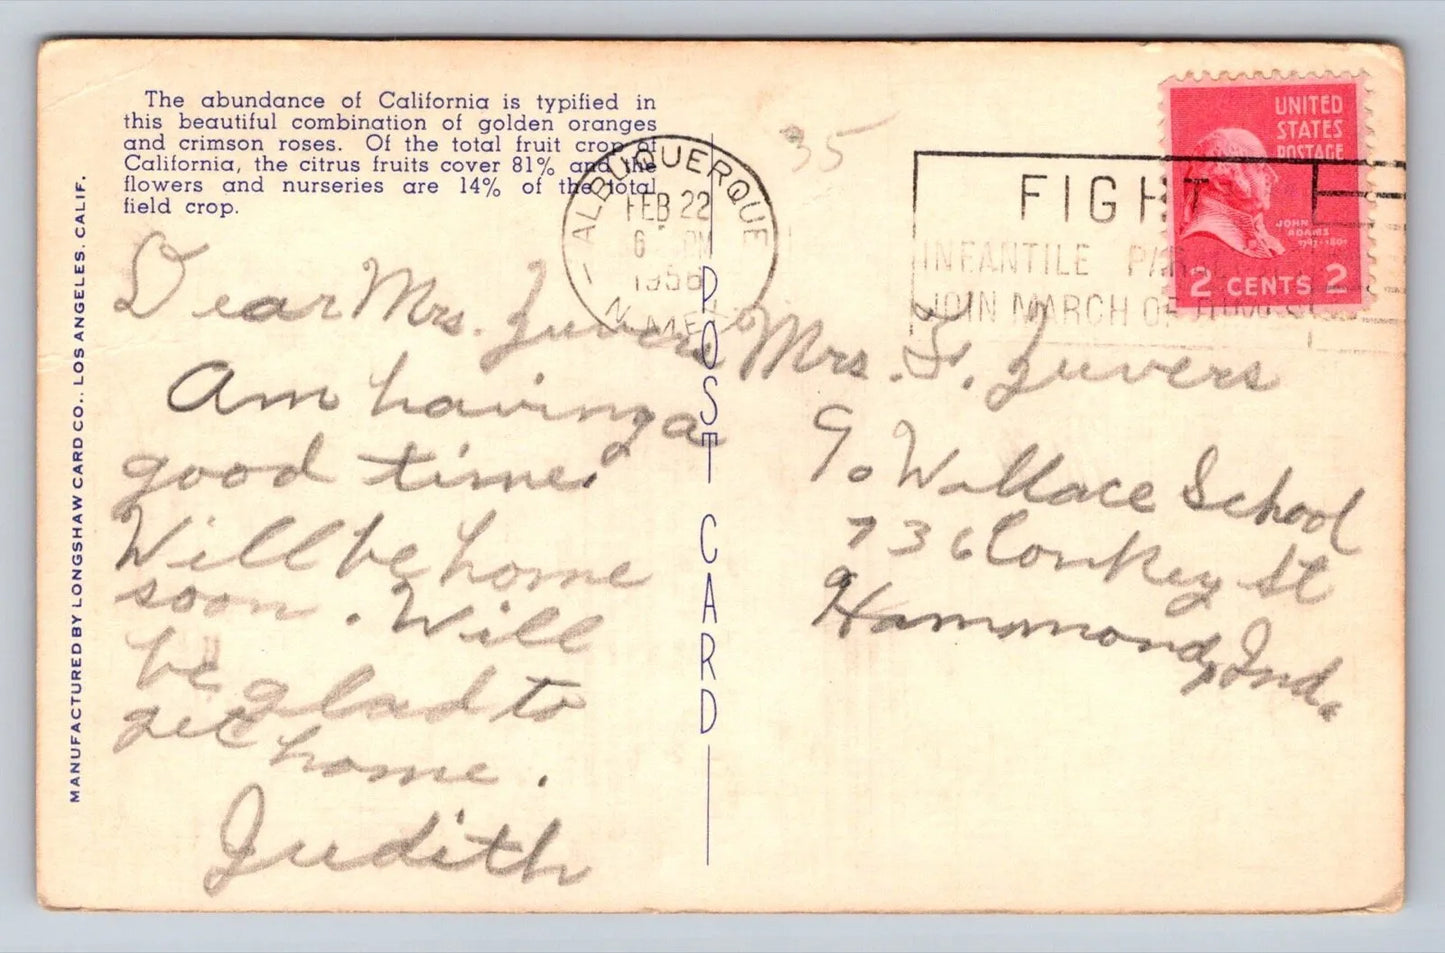 The abundance of California is typified in
this beautiful combination of golden oranges
and crimson roses. Of the total fruit crop of
California, the citrus fruits cover 81% and the
flowers and nurseries are 14% of the total
field crop.
MANUFACTURED BY LONGSHAW CARD CO., LOS ANGELES, CALIF.
35
ALBUQUERQUE
FEB 22
6 PM
1956
N. MEX.
FIGHT
INFANTILE
JOIN MARCH OF DIMES
UNITED
STATES
POSTAGE
JOHN
ADAMS
1797-1801
2 CENTS 2
POST CARD
Dear Mrs. Zuvers
Am having a
good time.
Will be home
soon. Will
be glad to
get home.
Judith
Mrs. F. Zuvers
℅ Wallace School
736 Conkey St
Hammond, Ind.